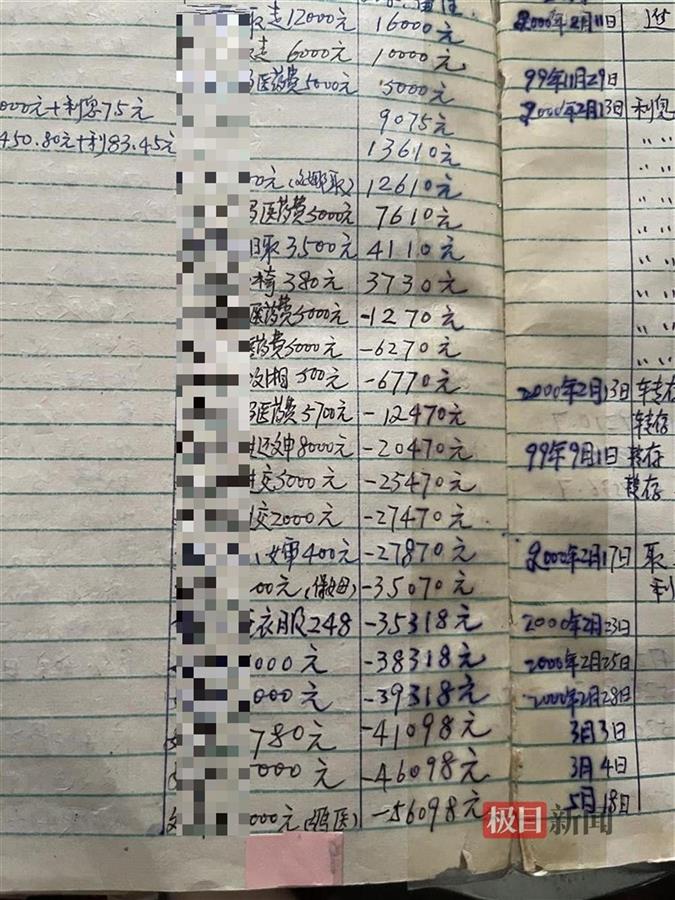 取走12000元 16000元 2000年2月11日
走 6000元 10000元
医药费5000元 5000元 99年11月29日
000元+利息75元 9075元 2000年2月13日 利息
450.80元+利83.45元 13610元 〃 〃
00元 取) 12610元 〃 〃
医药费5000元 7610元 〃 〃
取3500元 4110元 〃 〃
椅380元 3730元 〃 〃
医药费5000元 -1270元 〃 〃
医药费5000元 -6270元 〃 〃
500元 -6770元 2000年2月13日 转存
医药费5700元 -12470元 转存
8000元 -20470元 99年9月1日 转存
交5000元 -25470元 转存
交2000元 -27470元
400元 -27870元 2000年2月17日 取
00元(保姆) -35070元 利
衣服248 -35318元 2000年2月23日
000元 -38318元 2000年2月25日
000元 -39318元 2000年2月28日
780元 -41098元 3月3日
000元 -46098元 3月4日
000元 -56098元 5月18日
极目新闻